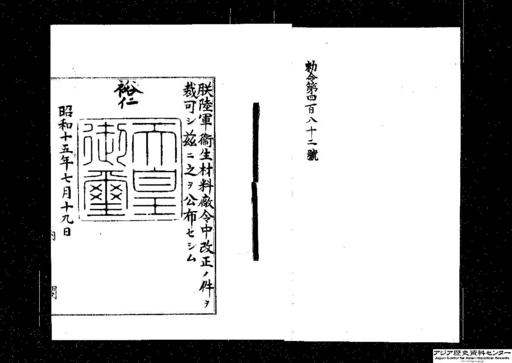 勅令第四百八十二號
朕陸軍衞生材料廠令中改正ノ件ヲ
裁可シ茲ニ之ヲ公布セシム
裕仁
天皇
御璽
昭和十五年七月十九日
内閣
アジア歴史資料センター
Japan Center for Asian Historical Records